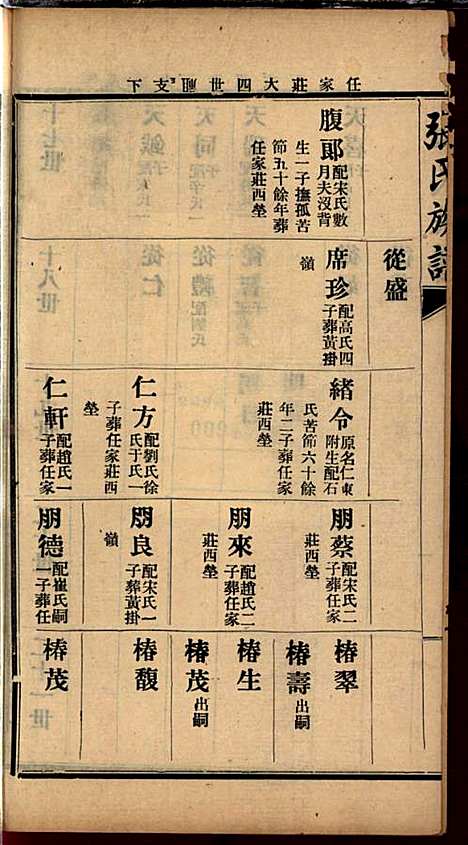 張氏族譜
任家莊大四世聃支下
腹郎
配宋氏數
月夫沒背
生一子撫孤苦
節五十餘年葬
任家莊西塋
從盛
席珍
配高氏四
子葬黃掛
嶺
緒令
原名仁東
附生配石
氏苦節六十餘
年二子葬任家
莊西塋
仁方
配劉氏徐
氏于氏一
子葬任家莊西
塋
仁軒
配趙氏一
子葬任家
朋蔡
配宋氏二
子葬任家
莊西塋
朋來
配趙氏二
子葬任家
莊西塋
朋良
配宋氏一
子葬黃掛
嶺
朋德
配崔氏嗣
一子葬任
椿翠
椿壽
出嗣
椿生
椿茂
出嗣
椿馥
椿茂